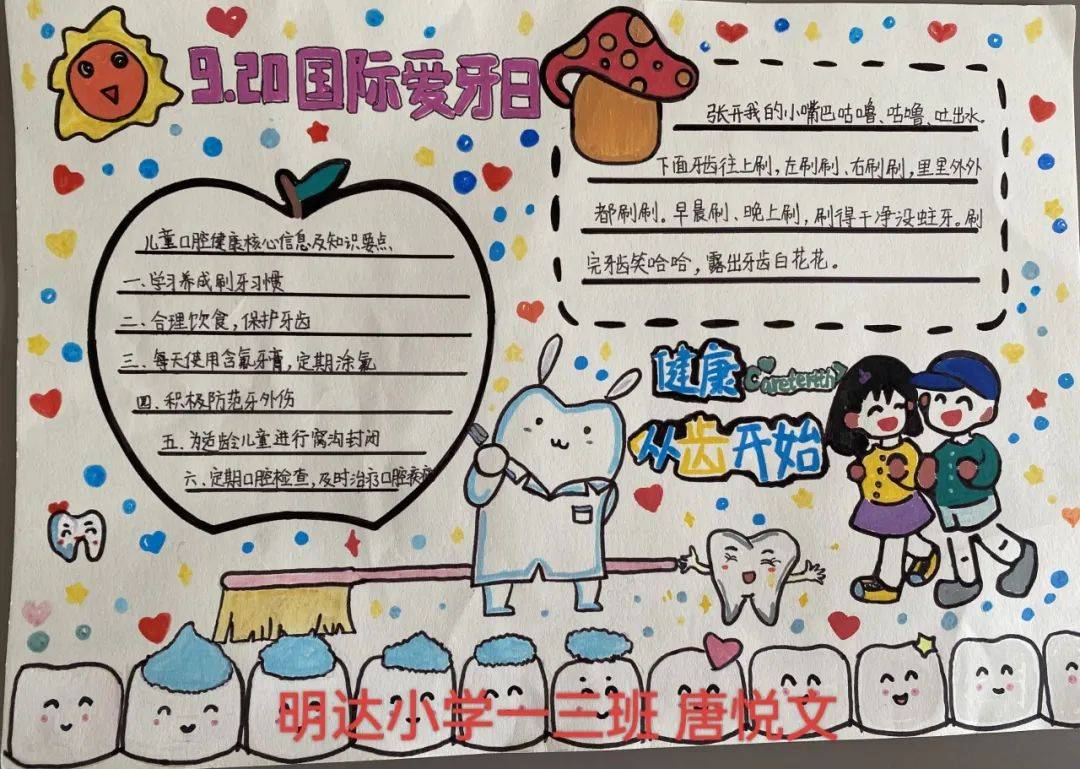 9.20国际爱牙日
张开我的小嘴巴咕噜、咕噜、吐出水。
下面牙齿往上刷,左刷刷、右刷刷,里里外外
都刷刷。早晨刷、晚上刷,刷得干净没蛀牙。刷
完牙齿笑哈哈,露出牙齿白花花。
儿童口腔健康核心信息及知识要点
一、学习养成刷牙习惯
二、合理饮食,保护牙齿
三、每天使用含氟牙膏,定期涂氟
四、积极防范牙外伤
五、为适龄儿童进行窝沟封闭
六、定期口腔检查,及时治疗口腔疾病
健康
从齿开始
明达小学一三班 唐悦文